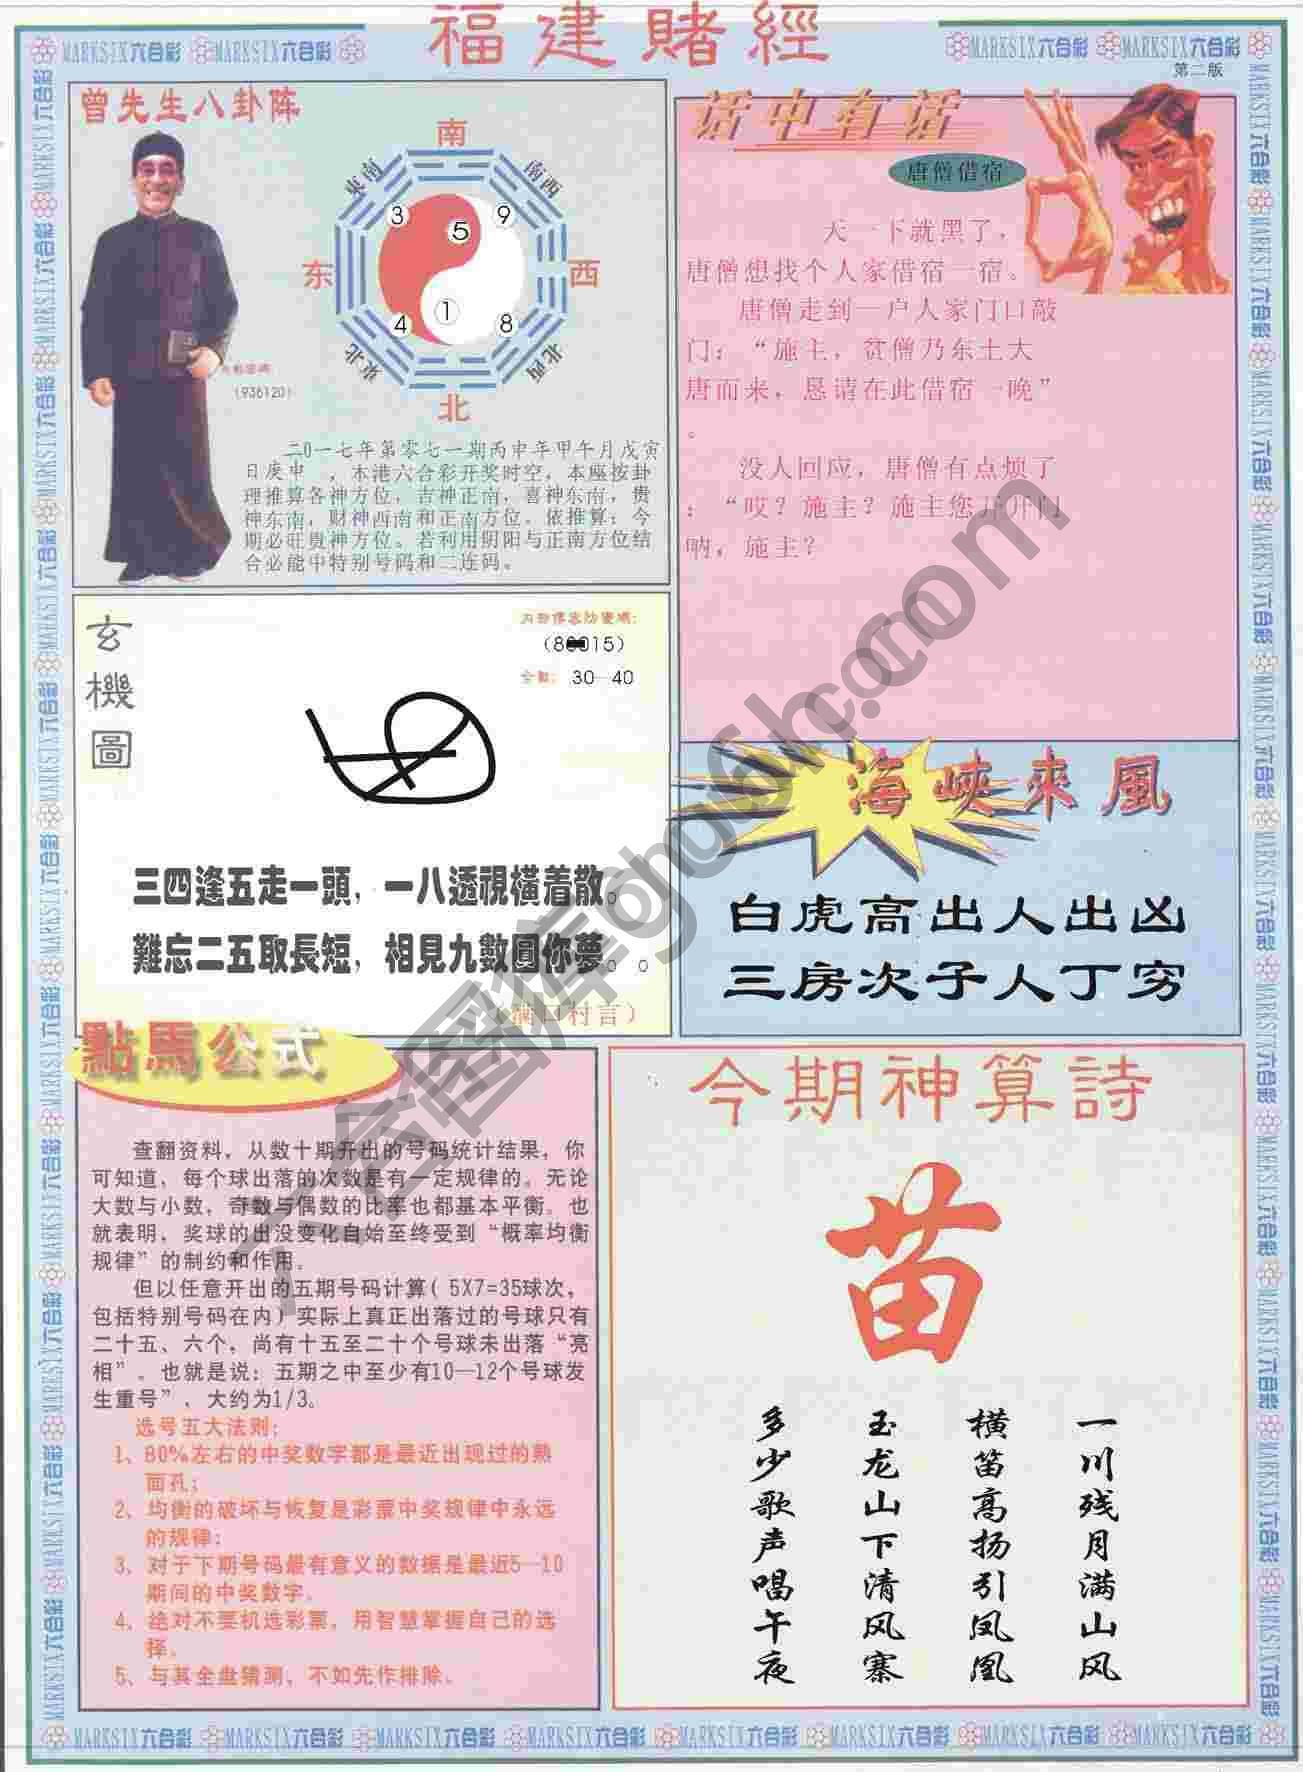 福建賭經
MARKSIX六合彩 MARKSIX六合彩
MARKSIX六合彩 MARKSIX六合彩
第二版
曾先生八卦阵
南
東南
南西
3
9
5
东
西
1
4
8
東北
北西
北
(936120)
二0一七年第零七一期丙申年甲午月戊寅
日庚申 ,本港六合彩开奖时空,本座按卦
理推算各神方位,吉神正南,喜神东南,贵
神东南,财神西南和正南方位。依推算:今
期必旺贵神方位。若利用阴阳与正南方位结
合必能中特别号码和二连码。
话中有话
唐僧借宿
天一下就黑了,
唐僧想找个人家借宿一宿。
唐僧走到一户人家门口敲
门:“施主,贫僧乃东土大
唐而来,恳请在此借宿一晚”
。
没人回应,唐僧有点烦了
:“哎?施主?施主您开开门
呐,施主?
玄機圖
30—40
三四逢五走一頭,一八透視橫着散。
難忘二五取長短,相見九數圓你夢。。
海峽來風
白虎高出人出凶
三房次子人丁穷
點馬公式
查翻资料,从数十期开出的号码统计结果,你
可知道,每个球出落的次数是有一定规律的。无论
大数与小数,奇数与偶数的比率也都基本平衡。也
就表明,奖球的出没变化自始至终受到“概率均衡
规律”的制约和作用。
但以任意开出的五期号码计算(5X7=35球次,
包括特别号码在内)实际上真正出落过的号球只有
二十五、六个,尚有十五至二十个号球未出落“亮
相”。也就是说:五期之中至少有10—12个号球发
生重号”,大约为1/3。
选号五大法则:
1、80%左右的中奖数字都是最近出现过的熟
面孔;
2、均衡的破坏与恢复是彩票中奖规律中永远
的规律;
3、对于下期号码最有意义的数据是最近5—10
期间的中奖数字。
4、绝对不要机选彩票,用智慧掌握自己的选
择。
5、与其全盘猜测,不如先作排除。
今期神算詩
苗
一川残月满山风
横笛高扬引凤凰
玉龙山下清风寨
多少歌声唱午夜
MARKSIX六合彩 MARKSIX六合彩 MARKSIX六合彩 MARKSIX六合彩 MARKSIX六合彩 MARKSIX六合彩 MARKSIX六合彩 MARKSIX六合彩